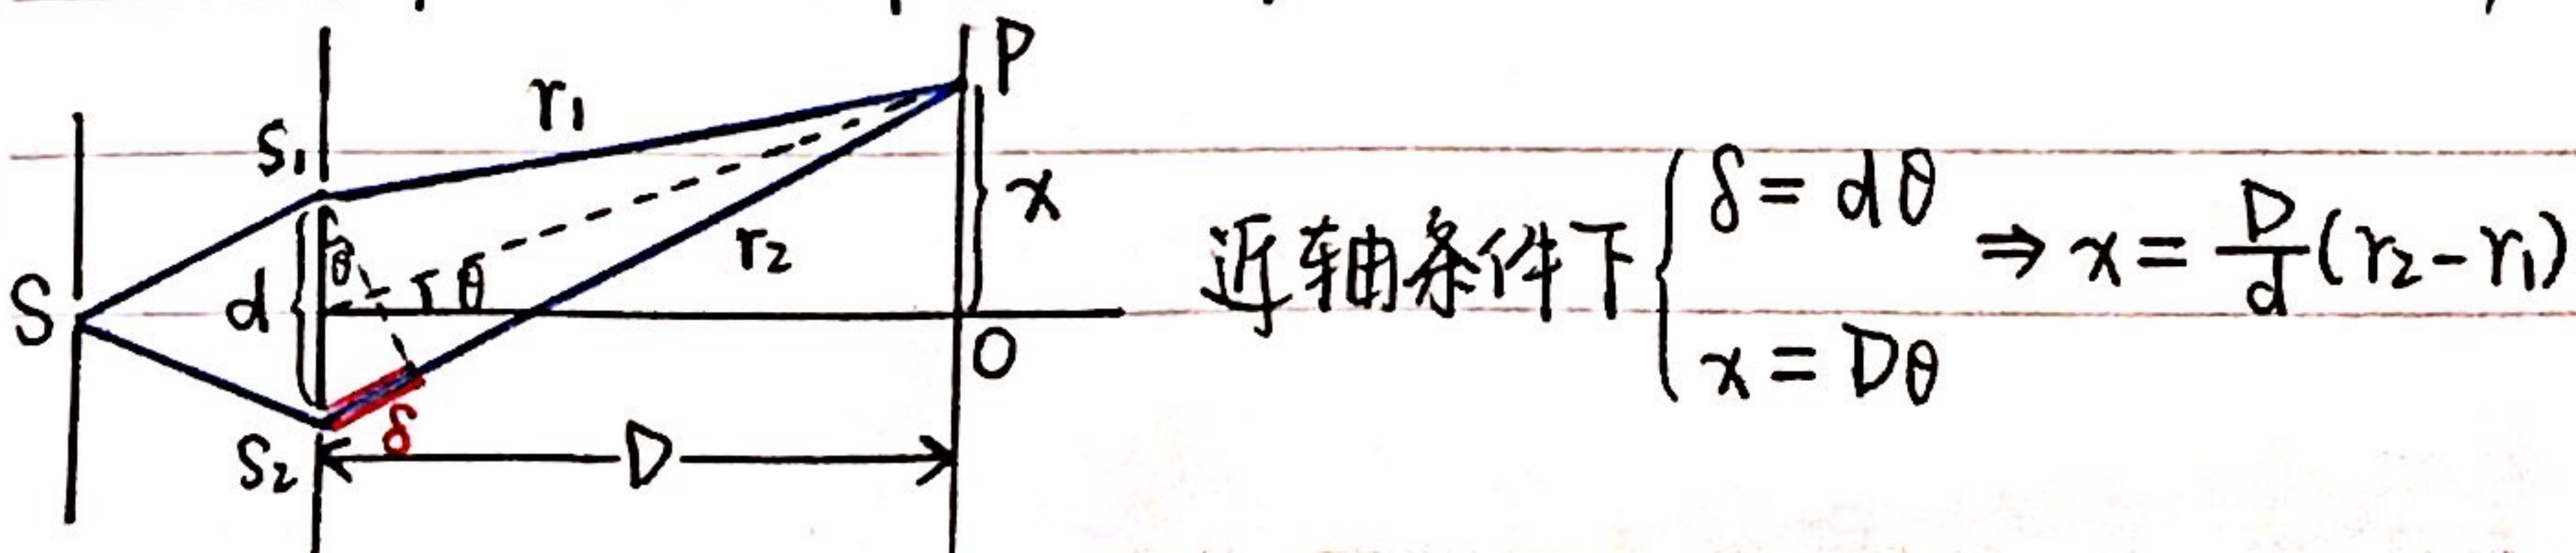 P
r₁
S₁
x
r₂
θ
θ
d
S
O
δ
S₂
D
近轴条件下 { δ = dθ
x = Dθ
⇒ x = D/d (r₂ - r₁)